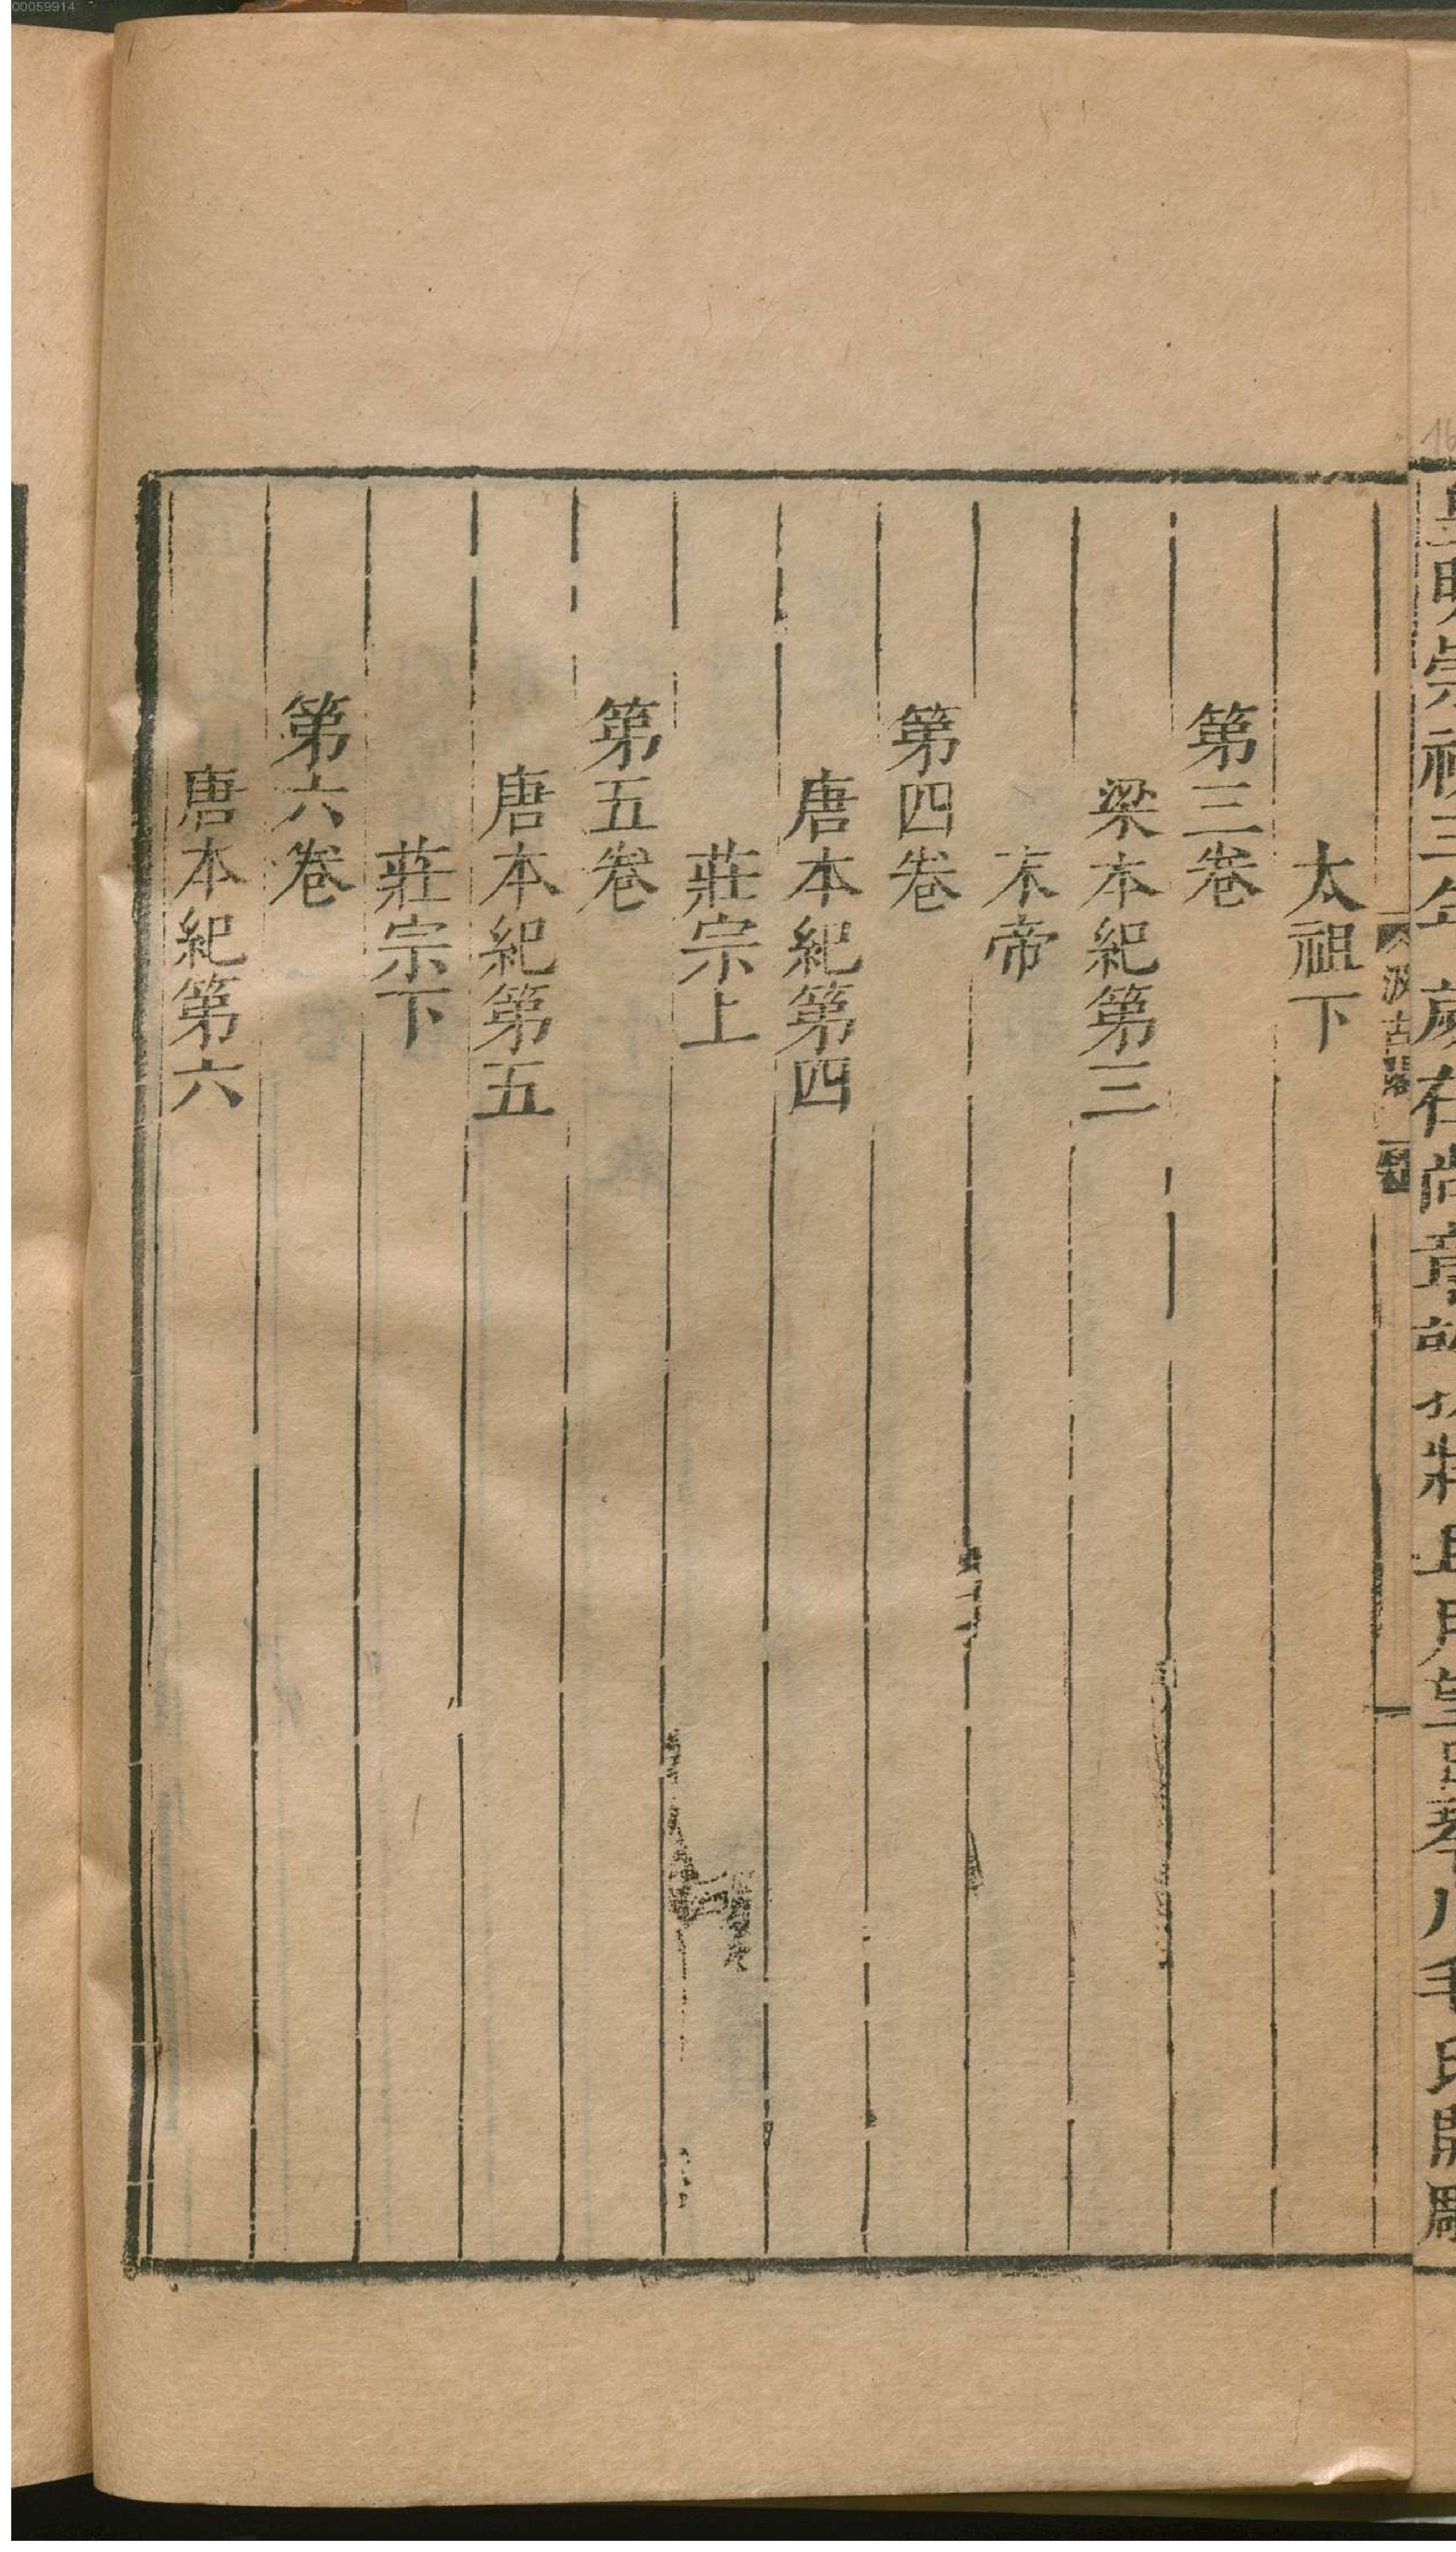 皇明崇禎三年歲在尚章
毛氏開雕
汲古閣
太祖下
第三卷
梁本紀第三
末帝
第四卷
唐本紀第四
莊宗上
第五卷
唐本紀第五
莊宗下
第六卷
唐本紀第六
00059914